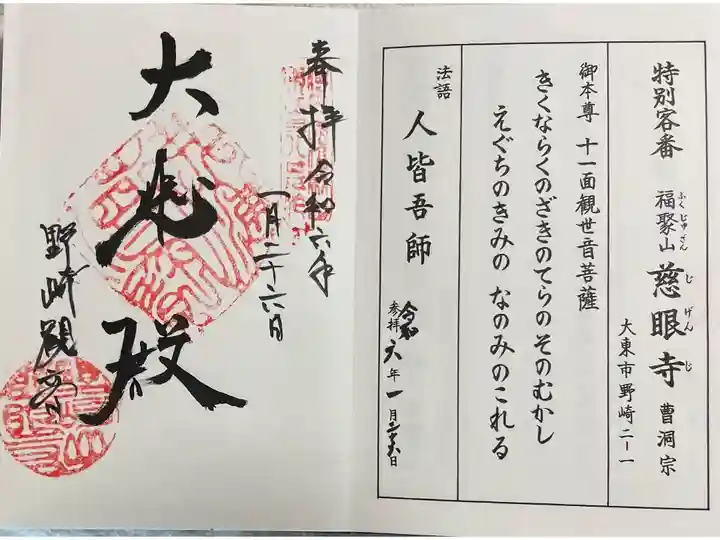 特別客番 福聚山 慈眼寺 曹洞宗
ふくじゅざん じげんじ
大東市野崎二ー一
御本尊 十一面観世音菩薩
きくならくのざきのてらのそのむかし
えぐちのきみの なのみのこれる
法語 人皆吾師
参拝 令和六年一月二十六日
奉拝 令和六年
一月二十六日
大悲殿
野崎観音